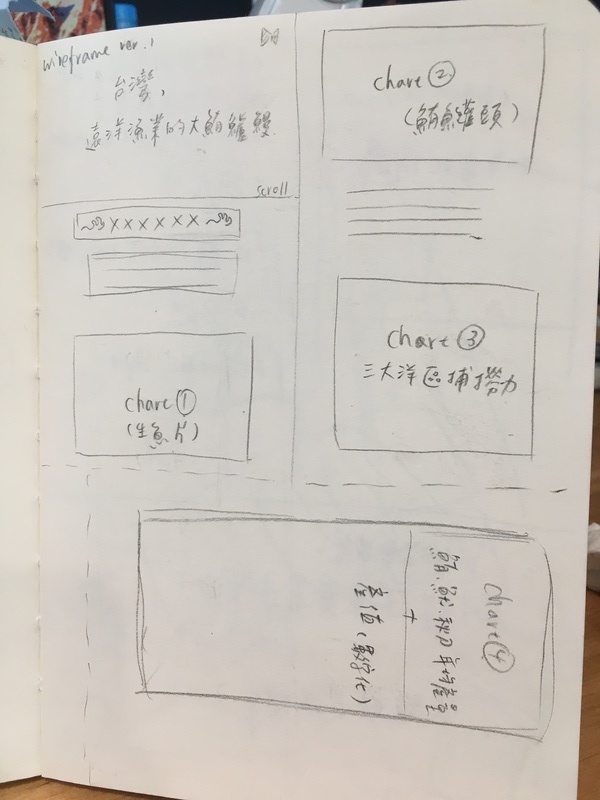 wireframe ver.1
台灣,
遠洋漁業的大鮪鱸鰻
scroll
XXXXXX
chart①
(生魚片)
chart②
(鮪魚罐頭)
chart③
三大洋區捕撈力
chart④
鮪、魷、秋刀 年均產量
+
產值(數字化)